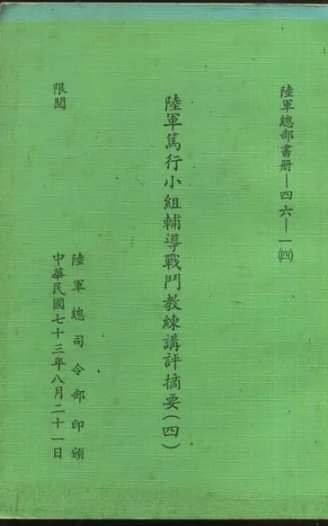 陸軍總部書冊—四六—一㈣
陸軍篤行小組輔導戰鬥教練講評摘要(四)
限閱
陸軍總司令部印頒
中華民國七十三年八月二十一日